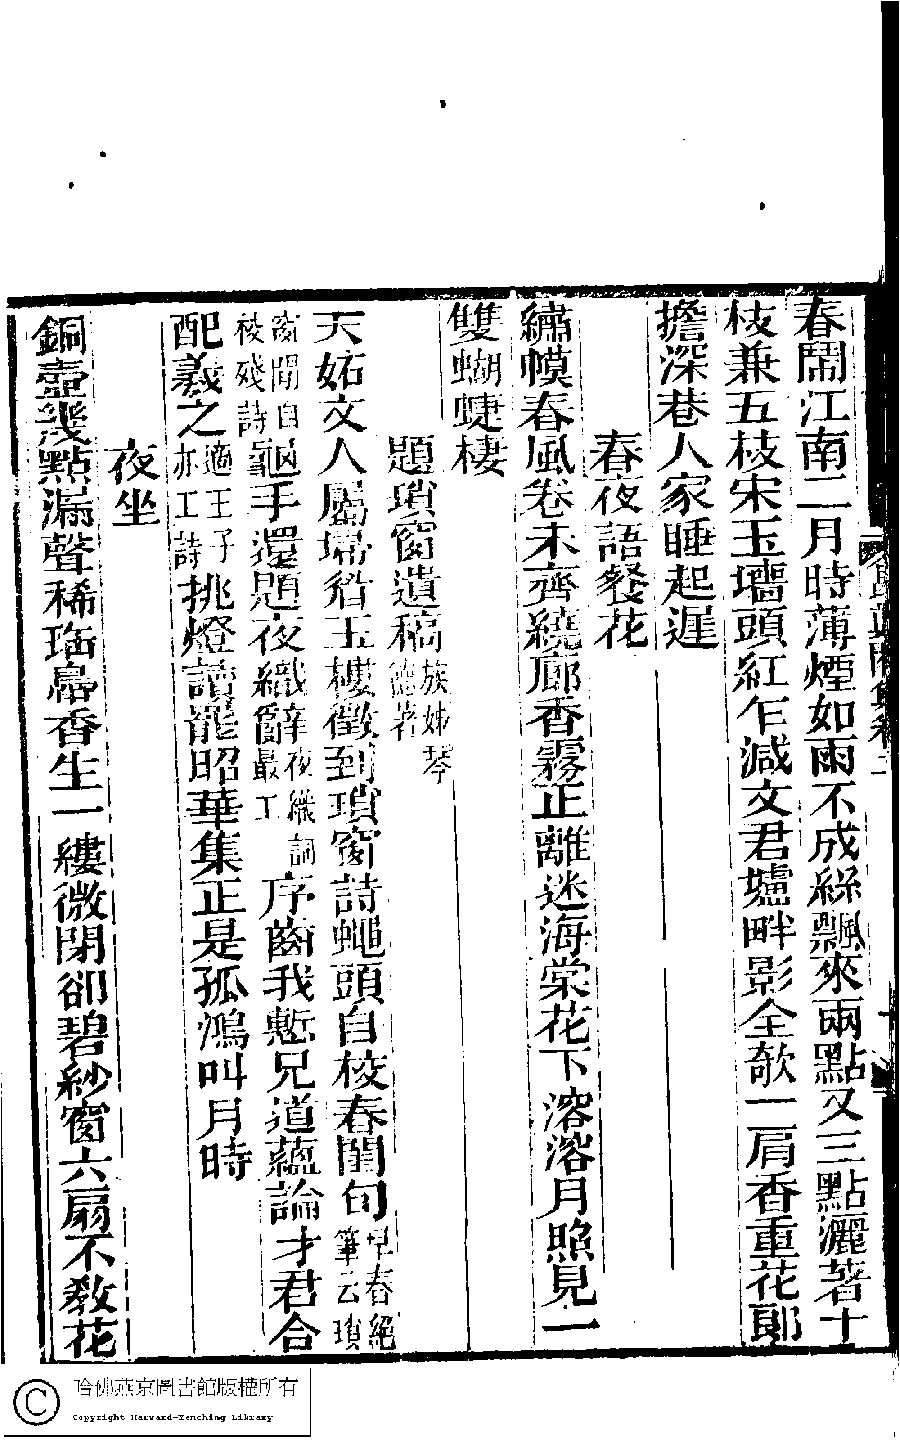 春鬧江南二月時薄煙如雨不成絲飄來兩點又三點灑著十
枝兼五枝宋玉墻頭紅乍減文君壚畔影全欹一肩香重花郎
擔深巷人家睡起遲
春夜語餐花
繡幙春風卷未齊繞廊香霧正離迷海棠花下溶溶月照見一
雙蝴蜨棲
題瑣窗遺稿族姊琴德著
天妬文人屬埽眉玉樓徵到瑣窗詩蠅頭自校春閨句早春絕筆云瑣
窗閒自校殘詩龜手還題夜織辭夜織詞最工序齒我慙兄道蘊論才君合
配羲之適王子亦工詩挑燈讀罷昭華集正是孤鴻叫月時
夜坐
銅壺幾點漏聲稀瑞鳧香生一縷微閉卻碧紗窗六扇不敎花
哈佛燕京圖書館版權所有
Copyright Harvard-Yenching Library